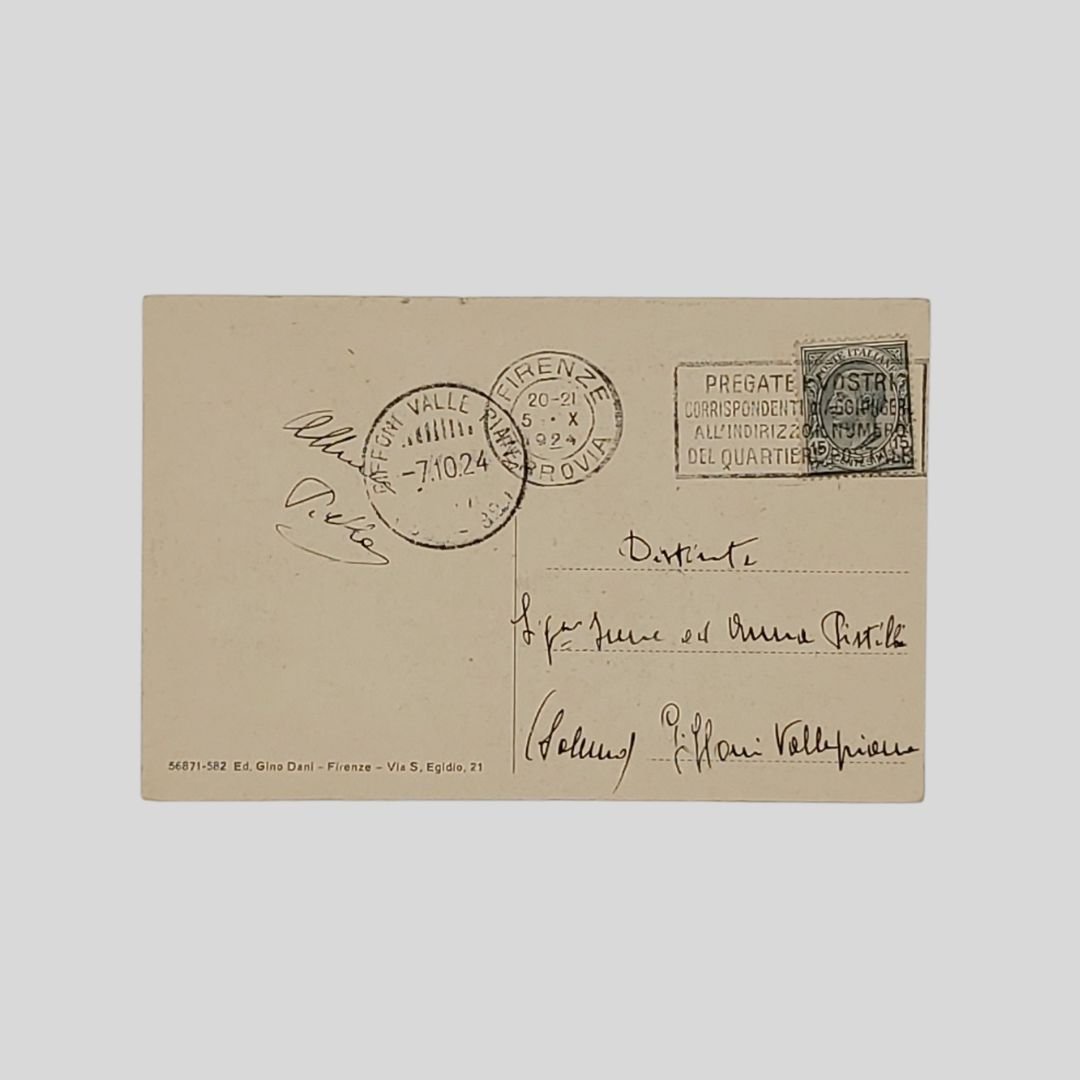 FIRENZE
20-21
5 · X
1924
FERROVIA
GIFFONI VALLE PIANA
-7.10.24
POSTE ITALIANE
15 15
PREGATE I VOSTRI
CORRISPONDENTI DI AGGIUNGERE
ALL'INDIRIZZO IL NUMERO
DEL QUARTIERE POSTALE
Distinte
Sig.ne Irene ed Anna Pistilli
(Salerno) Giffoni Vallepiana
56871-582 Ed. Gino Dani - Firenze - Via S. Egidio, 21